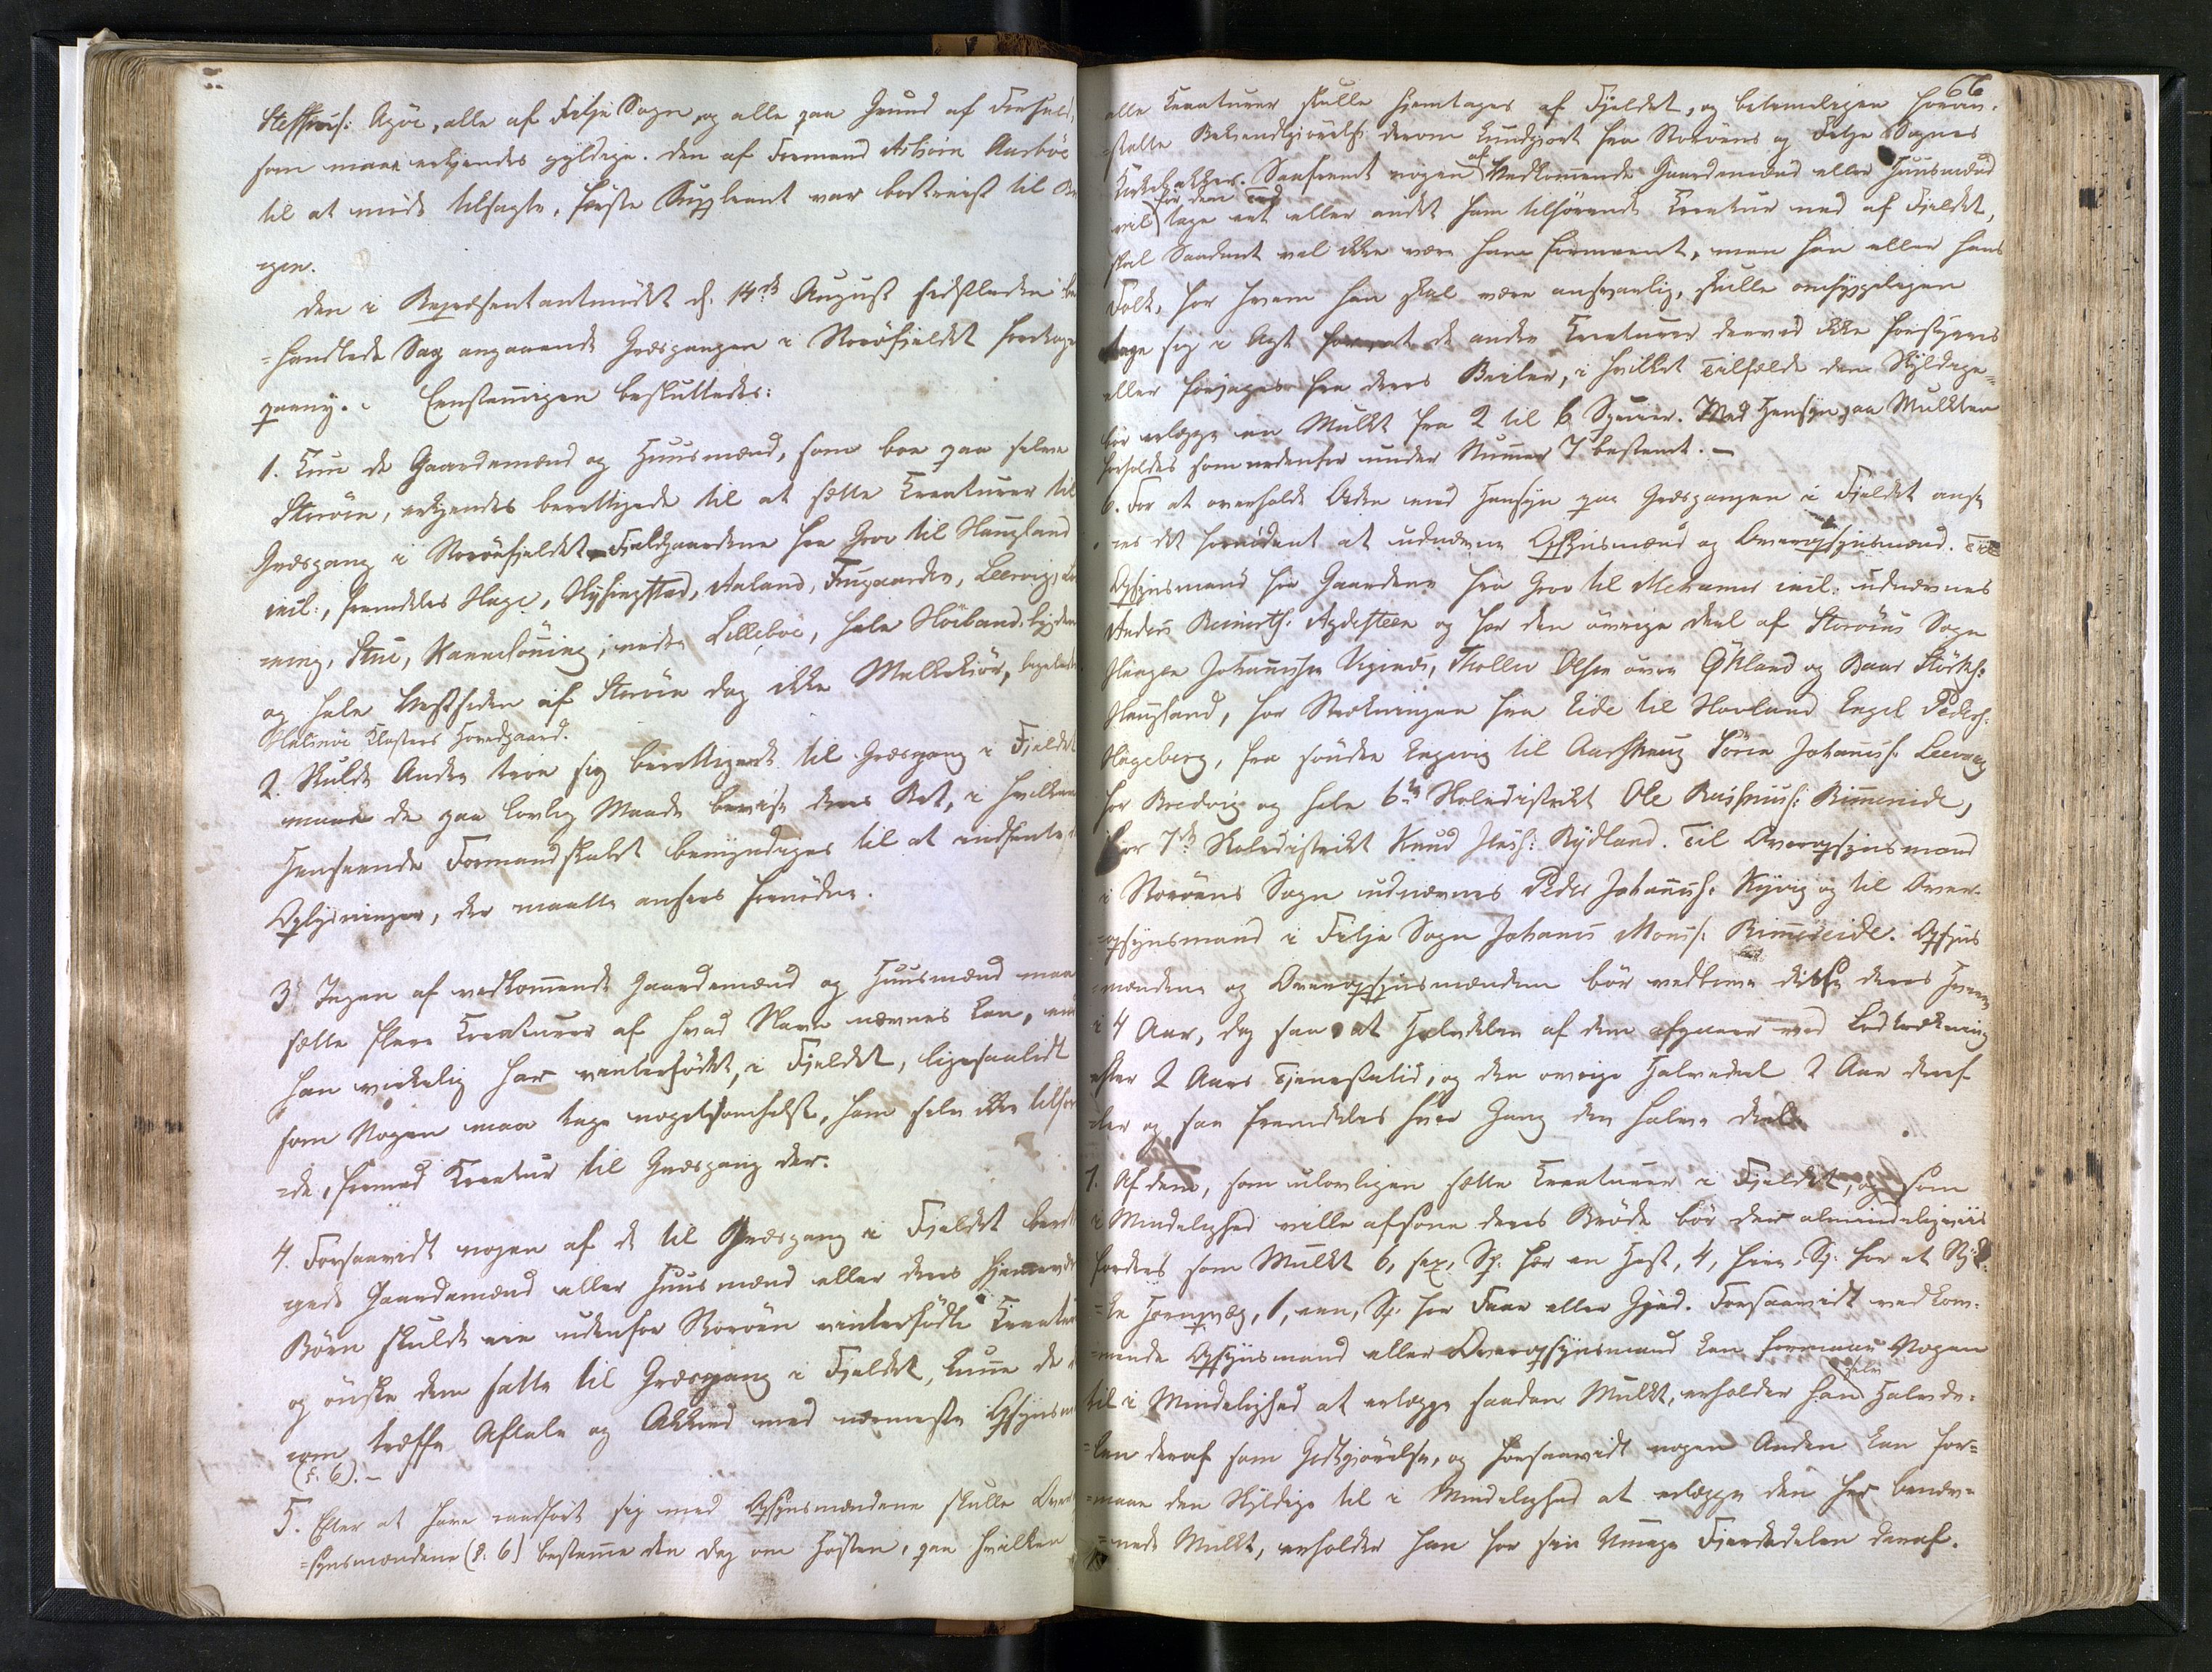 Steffens: Agöe, alle af Fitje Sogn, og alle paa Grund af Forfald,
som maae erkjendes gyldige. Den af Formand Asbiørn Aarböe
til at möde tilsagte, förste Suppleant var bortreist til Ber
gen.
Den i Repræsentantmödet d. 14de August sidstleden be
=handlede Sag angaaende Græsgangen i Storöfjeldet foretoges
paany. Eenstemmigen besluttedes:
1. Kun de Gaardemænd og Huusmænd, som boe paa selve
Storöen, erkjendes berettigede til at sætte Kreaturer til
Græsgang i Storöefjeldet, Fjeldgaardene fra Grov til Haugland
incl:, fremdeles Hage, Hysingstad, Aaland, Frugaarden, Leervig,
ning, Stue, Kannelönning, nedre Lilleböe, hele Höilandsbygden
og hele Vestsiden af Storöen dog ikke Mellekiör,
Halsnöe Klosters Hovedgaard.
2. Skulde Andre troe sig berettigede til Græsgang i Fjeldet
maae de paa lovlig Maade bevise deres Ret, i hvilken
Henseende Formandskabet bemyndiges til at indhente de
Oplysninger, der maatte ansees fornödne.
3. Ingen af vedkommende Gaardemænd og Huusmænd maa
sætte flere Kreaturer af hvad Navn nævnes kan, end
han virkelig har vinterfödt, i Fjeldet, ligesaalidt
som Nogen maa tage nogetsomhelst, ham selv ikke tilhören
=de, fremmed Kreatur til Græsgang der.
4. Forsaavidt nogen af de til Græsgang i Fjeldet beret
gede Gaardemænd eller Huusmænd eller deres hjemmevær
Börn skulde eie udenfor Storöen vinterfödte Kreaturer
og önske dem satte til Græsgang i Fjeldet, kunne de
om træffe Aftale og Akkord med nærmeste Opsynsm
(§. 6).-
5. Efter at have raadfört sig med Opsynsmændene skulle Overop
=synsmændene (§. 6) bestemme den Dag om Hösten, paa hvilken
66
alle Kreaturer skulle hjemtages af Fjeldet, og betimeligen foran-
=stalte Bekjendtgjörelse derom kundgjort fra Storöens og Fitje Sognes
Kirkebakker. Saafremt nogen af Vedkommende Gaardemænd eller Huusmænd
för den Tid
vil tage eet eller andet ham tilhörende Kreatur ned af Fjeldet,
skal Saadant vel ikke være ham formeent, men han eller hans
Folk, for hvem han skal være ansvarlig, skulle omhyggeligen
tage sig i Agt for at de andre Kreaturer derved ikke forstyrres
eller forjages fra deres Beiter, i hvilket Tilfælde den Skyldige
bör erlægge en Mulkt fra 2 til 6 Specier. Med Hensyn paa Mulkten
forholdes som nedenfor under Nummer 7 bestemt. -
6. For at overholde Orden med Hensyn paa Græsgangen i Fjeldet anse
=es det fornödent at udnævne Opsynsmænd og Overopsynsmænd. Til
Opsynsmænd for Gaardene fra Grov til Mehammer incl: udnævnes
Anders Reinerts: Agdesteen og for den övrige Deel af Storöens Sogn
Haagen Johannesen Vigenæs, Tholler Olsen övre Økland og Baar Störks:
Haugland, for Strækningen fra Eide til Hovland Engel Peders:
Hageberg, fra söndre Engevig til Aarskoug Sören Johannes: Leervaag
for Bredvig og hele 6te Skoledistrikt Ole Rasmus: Rimmereide,
for 7de Skoledistrikt Knud Jens: Rydland. Til Overopsynsmænd
i Storöens Sogn udnævnes Peder Johannes: Kyvig og til Over-
=opsynsmand i Fitje Sogn Johannes Mons: Rimmereide. Opsyns
=mændene og Overopsynsmændene bör vedblive disse deres Hverv
i 4 Aar, dog saa at Halvdelen af dem afgaaer ved Lodtrækning
efter 2 Aars Tjenestetid, og den övrige Halvdeel 2 Aar deref
=ter og saa fremdeles hver Gang den halve Deel.
7. Af dem, som ulovligen sætte Kreaturer i Fjeldet, og som
i Mindelighed ville afsone deres Bröde bör der almindeligviis
fordres som Mulkt 6, sex, Sp. for en Hest, 4, fire, Sp: for et Styk-
=ke Hornqvæg, 1, een, Sp. for Faar eller Gjed. Forsaavidt vedkom-
=mende Opsynsmand eller Overopsynsmand kan formaae Nogen
til i Mindelighed at erlægge saadan Mulkt, erholder han selv Halvde-
=len deraf som Godtgjörelse, og forsaavidt nogen Anden kan for=
=maae den Skyldige til i Mindelighed at erlægge den her benæv=
=nede Mulkt, erholder han for sin Umage Fjerdedelen deraf.